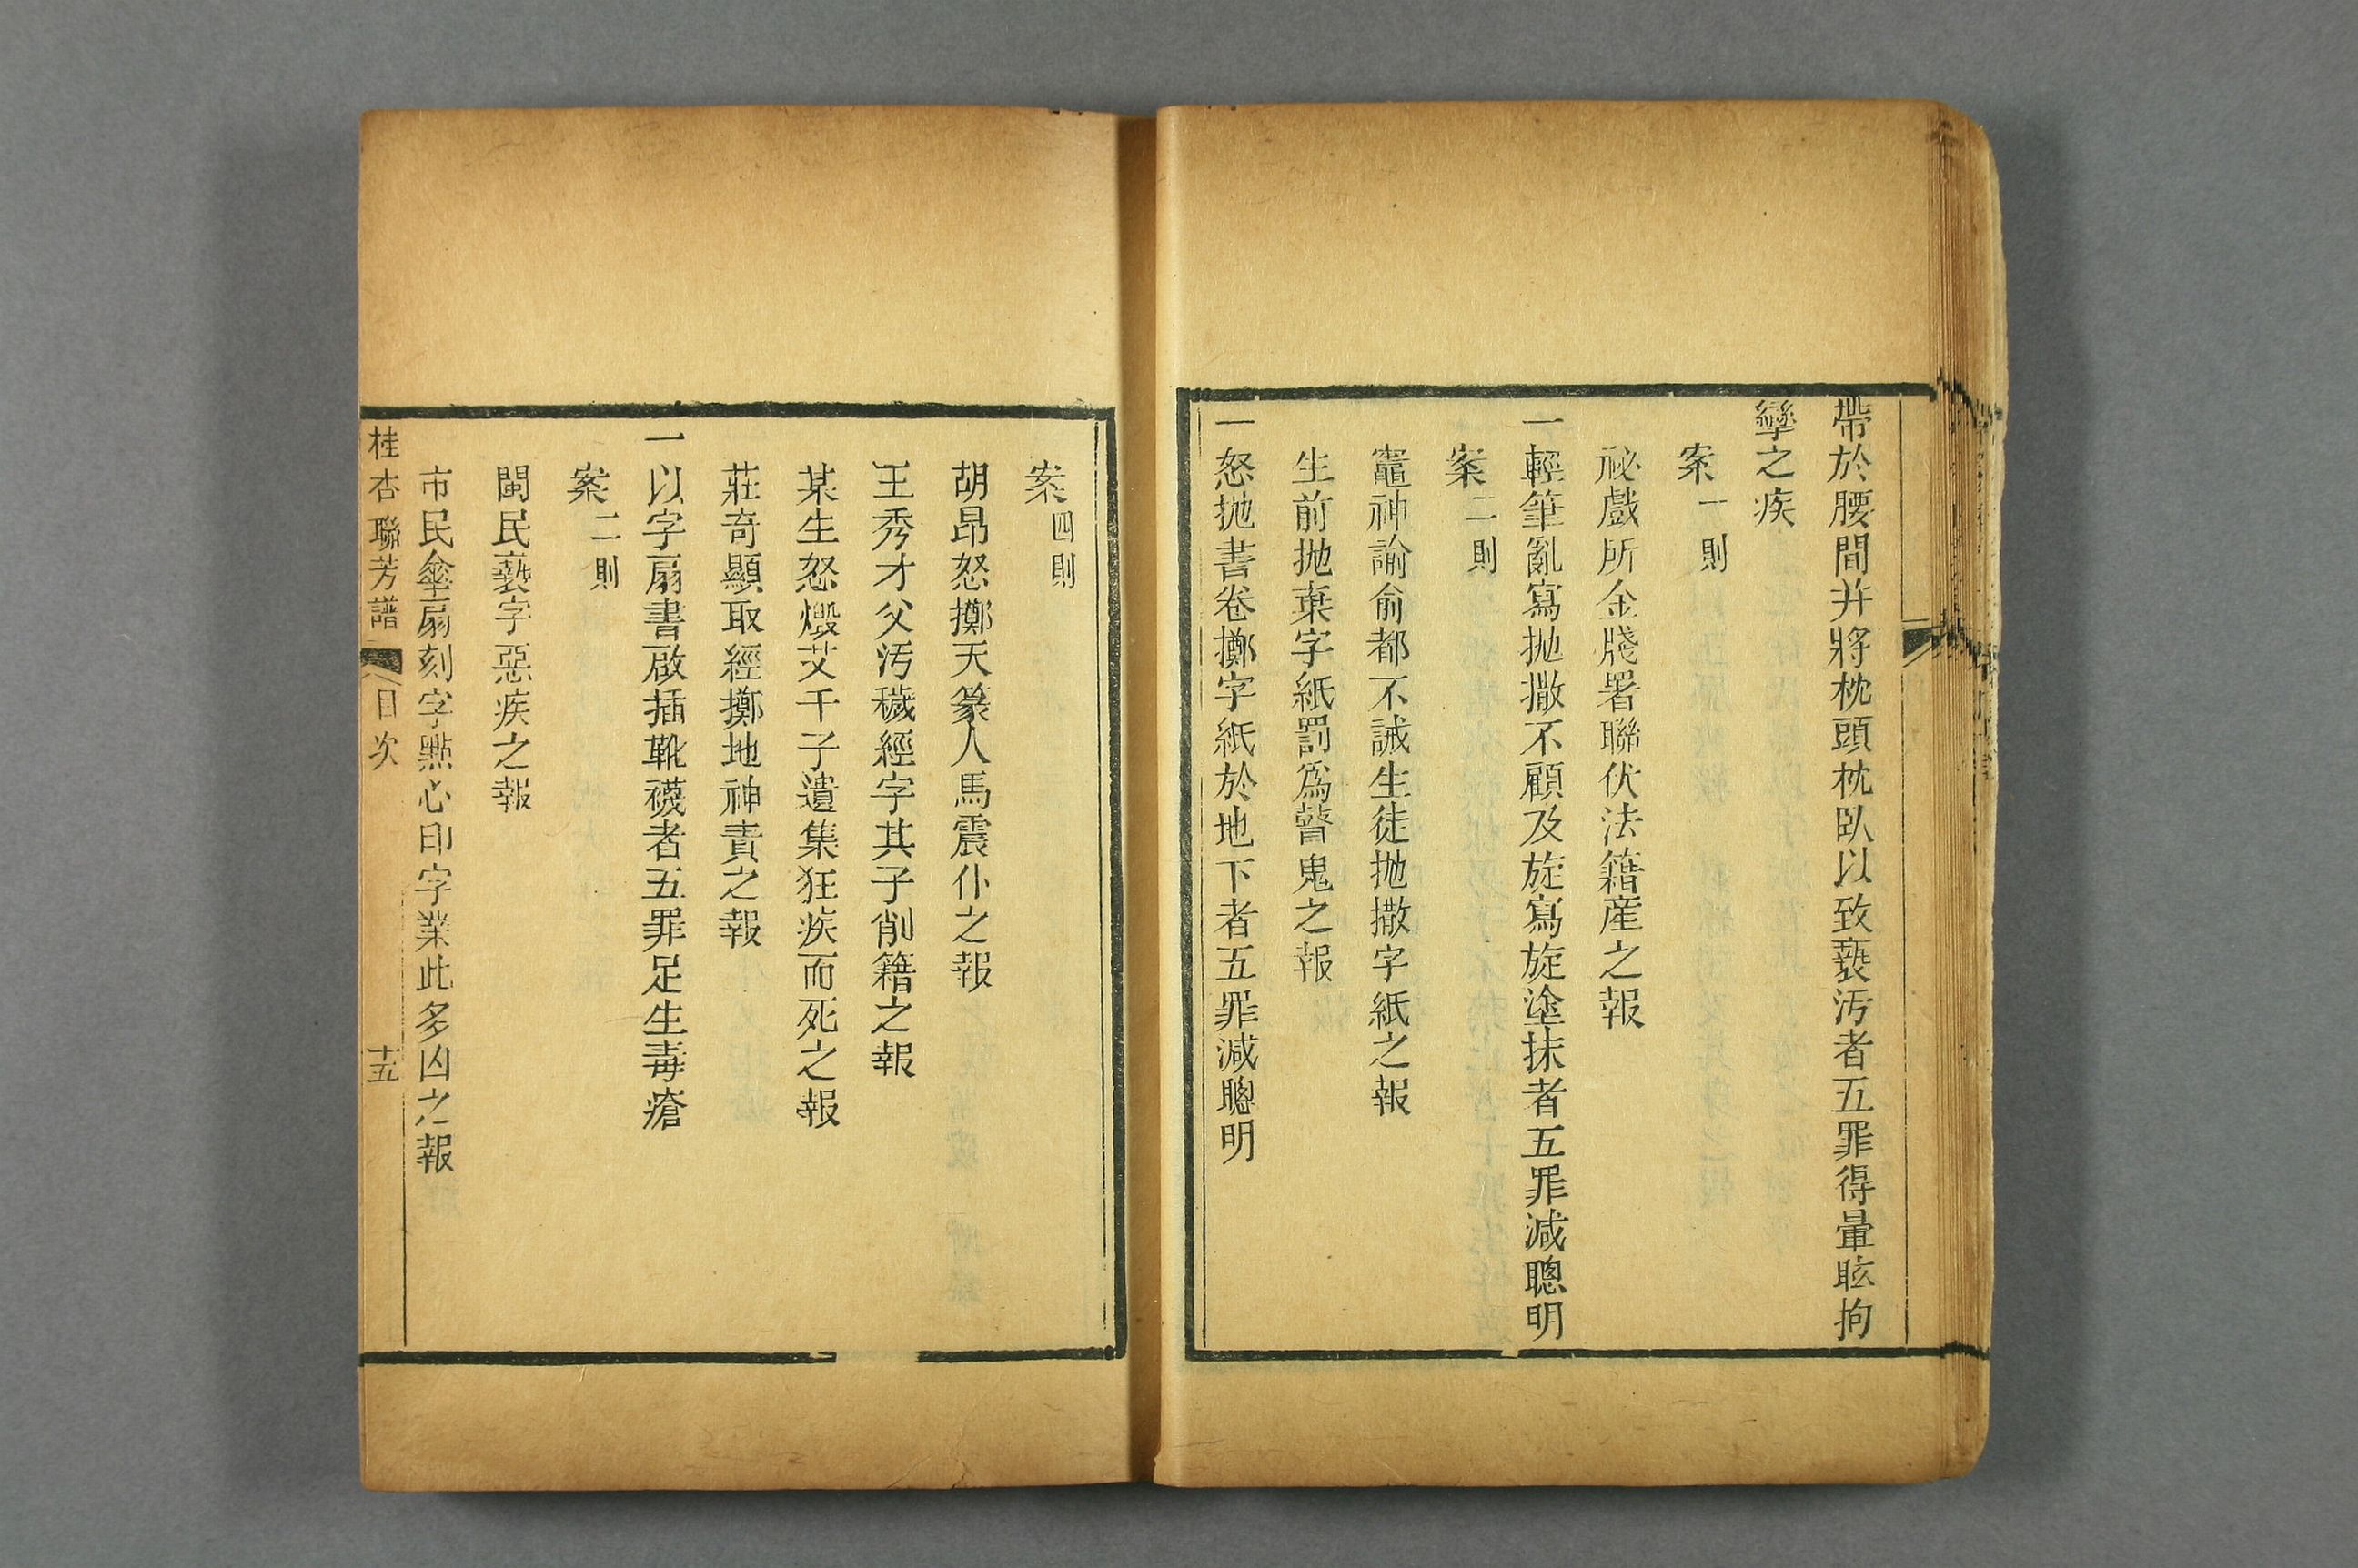 帶於腰間并將枕頭枕臥以致褻汚者五罪得暈眩拘
攣之疾
案一則
祕戲所金牋署聯伏法籍産之報
一輕筆亂寫抛撒不顧及旋寫旋塗抹者五罪減聰明
案二則
竈神諭俞都不誡生徒抛撒字紙之報
生前抛棄字紙罰爲瞽鬼之報
一怒抛書卷擲字紙於地下者五罪減聰明
案四則
胡昂怒擲天篆人馬震仆之報
王秀才父汚穢經字其子削籍之報
某生怒燬艾千子遺集狂疾而死之報
莊奇顯取經擲地神責之報
一以字扇書啟插靴襪者五罪足生毒瘡
案二則
閩民褻字惡疾之報
市民傘扇刻字㸃心印字業此多凶之報
桂杏聯芳譜 目次 十五